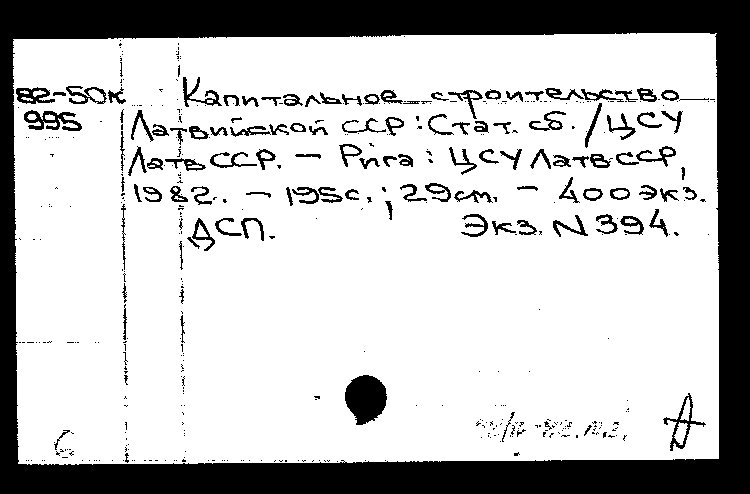 82-50к Капитальное строительство
995 Латвийской ССР : Стат. сб. / ЦСУ
Латв ССР. — Рига : ЦСУ Латв ССР,
1982. — 195 с. ; 29 см. — 400 экз.
ДСП. Экз. N 394.
6